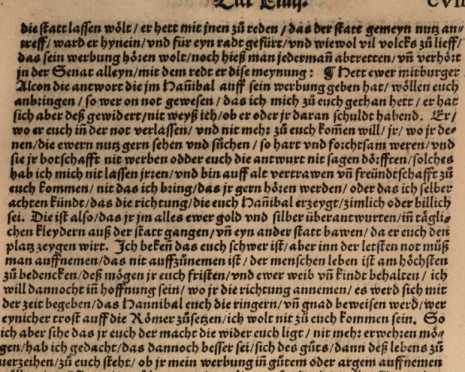 Tit. Liuij. CVII
die statt lassen wölt / er hett mit jnen zů reden / das der statt gemeyn nutz an-
treff / ward er hynein / vnd für eyn radt gefürt / vnd wiewol vil volcks zů lieff /
das sein werbung hören wolt / noch hieß man jederman̄ abtretten / vn̄ verhört
jn der Senat alleyn / mit dem redt er dise meynung : ¶ Hett ewer mitburger
Alcon die antwort die jm Han̄ibal auff sein werbung geben hat / wöllen euch
anbringen / so wer on not gewesen / das ich mich zů euch gethan hett / er hat
sich aber deß gewidert / nit weyß ich / ob er oder jr daran schuldt habend. Er /
wo er euch in̄ der not verlassen / vnd nit mehr zů euch kom̄en will / jr / wo jr de-
nen / die ewern nutz gern sehen vnd sůchen / so hart vnd forchtsam weren / vnd
sie jr botschafft nit werben odder euch die antwurt nit sagen dörfften / solches
hab ich mich nit lassen jrren / vnd bin auff alt vertrawen vn̄ freündtschafft zů
euch kommen / nit das ich bring / das jr gern hören werden / oder das ich selber
achten kündt / das die richtung / die euch Han̄ibal erzeygt / zimlich oder billich
sei. Die ist also / das jr jm alles ewer gold vnd silber überantwurten / in̄ tägli-
chen kleydern auß der statt gangen / vn̄ eyn ander statt bawen / da er euch den
platz zeygen wirt. Ich beken̄ das euch schwer ist / aber inn der letsten not můß
man auffnemen / das nit auffzůnemen ist / der menschen leben ist am höchsten
zů bedencken / deß mögen jr euch fristen / vnd ewer weib vn̄ kindt behalten / ich
will dannocht in̄ hoffnung sein / wo jr die richtung annemen / es werd sich mit
der zeit begeben / das Hannibal euch die ringern / vn̄ gnad beweisen werd / wer
eynicher trost auff die Römer zůsetzen / ich wolt nit zů euch kommen sein. So
ich aber sihe das jr euch der macht die wider euch ligt / nit mehr erwehren mö-
gen / hab ich gedacht / das dannoch besser sei / sich des gůts / dann deß lebens zů
verzeihen / zů euch steht / ob jr mein werbung in̄ gůtem oder argem auffnemen